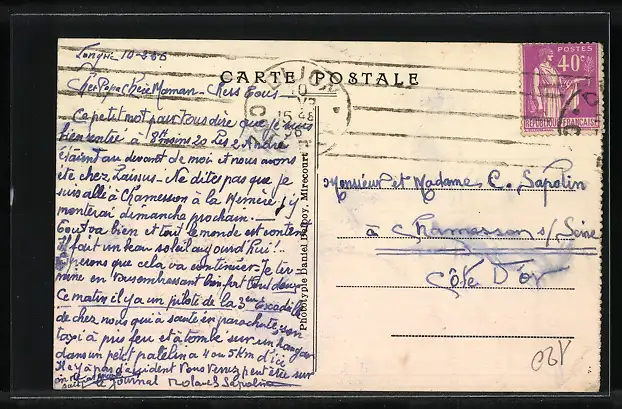 CARTE POSTALE
POSTES
40c
REPUBLIQUE FRANÇAISE
10
15 48
36
10-2-36
Cher Papa Chère Maman - Chers Tous
Ce petit mot pour vous dire que je suis
bien rentré à 8h moins 20 Les 2 André
étaient au devant de moi et nous avons
été chez - Ne dites pas que je
suis allé à Chamesson à la Mémère j'y
monterai dimanche prochain. -
Tout va bien et tout le monde est content
Il fait un beau soleil aujourd'hui!..
Espérons que cela va continuer. Je ter-
mine en vous embrassant bien fort tous deux
Ce matin il y a un pilote de la 3eme Escadrille
de chez nous qui a sauté en parachute, son
taxi a pris feu et a tombé sur un hangar
dans un petit patelin à 4 ou 5 km d'ici
Il n'y a pas d'accident Vous verrez peut être sur
le journal Sapolin
Phototypie Daniel Delboy, Mirecourt
Monsieur et Madame C. Sapolin
à Chamesson s/ Seine
Côte D'or